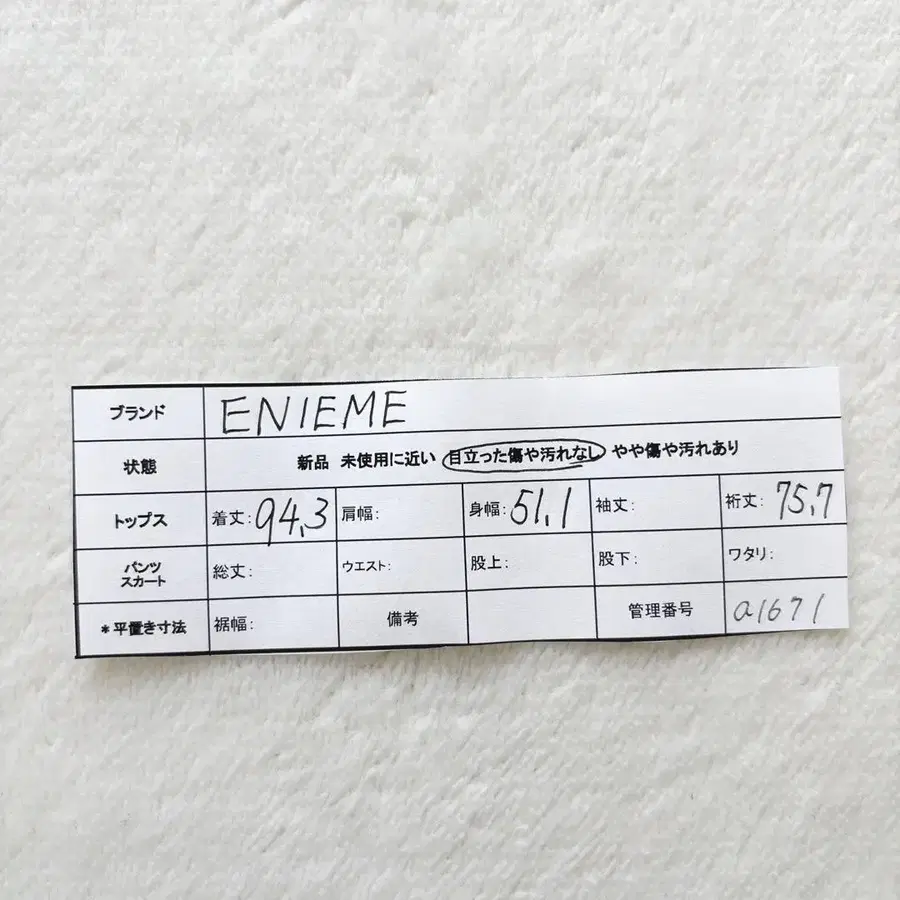 ブランド ENIEME
状態 新品 未使用に近い 目立った傷や汚れなし やや傷や汚れあり
トップス 着丈:94,3 肩幅: 身幅:51,1 袖丈: 裄丈:75,7
パンツ スカート 総丈: ウエスト: 股上: 股下: ワタリ:
*平置き寸法 裾幅: 備考 管理番号 a1671